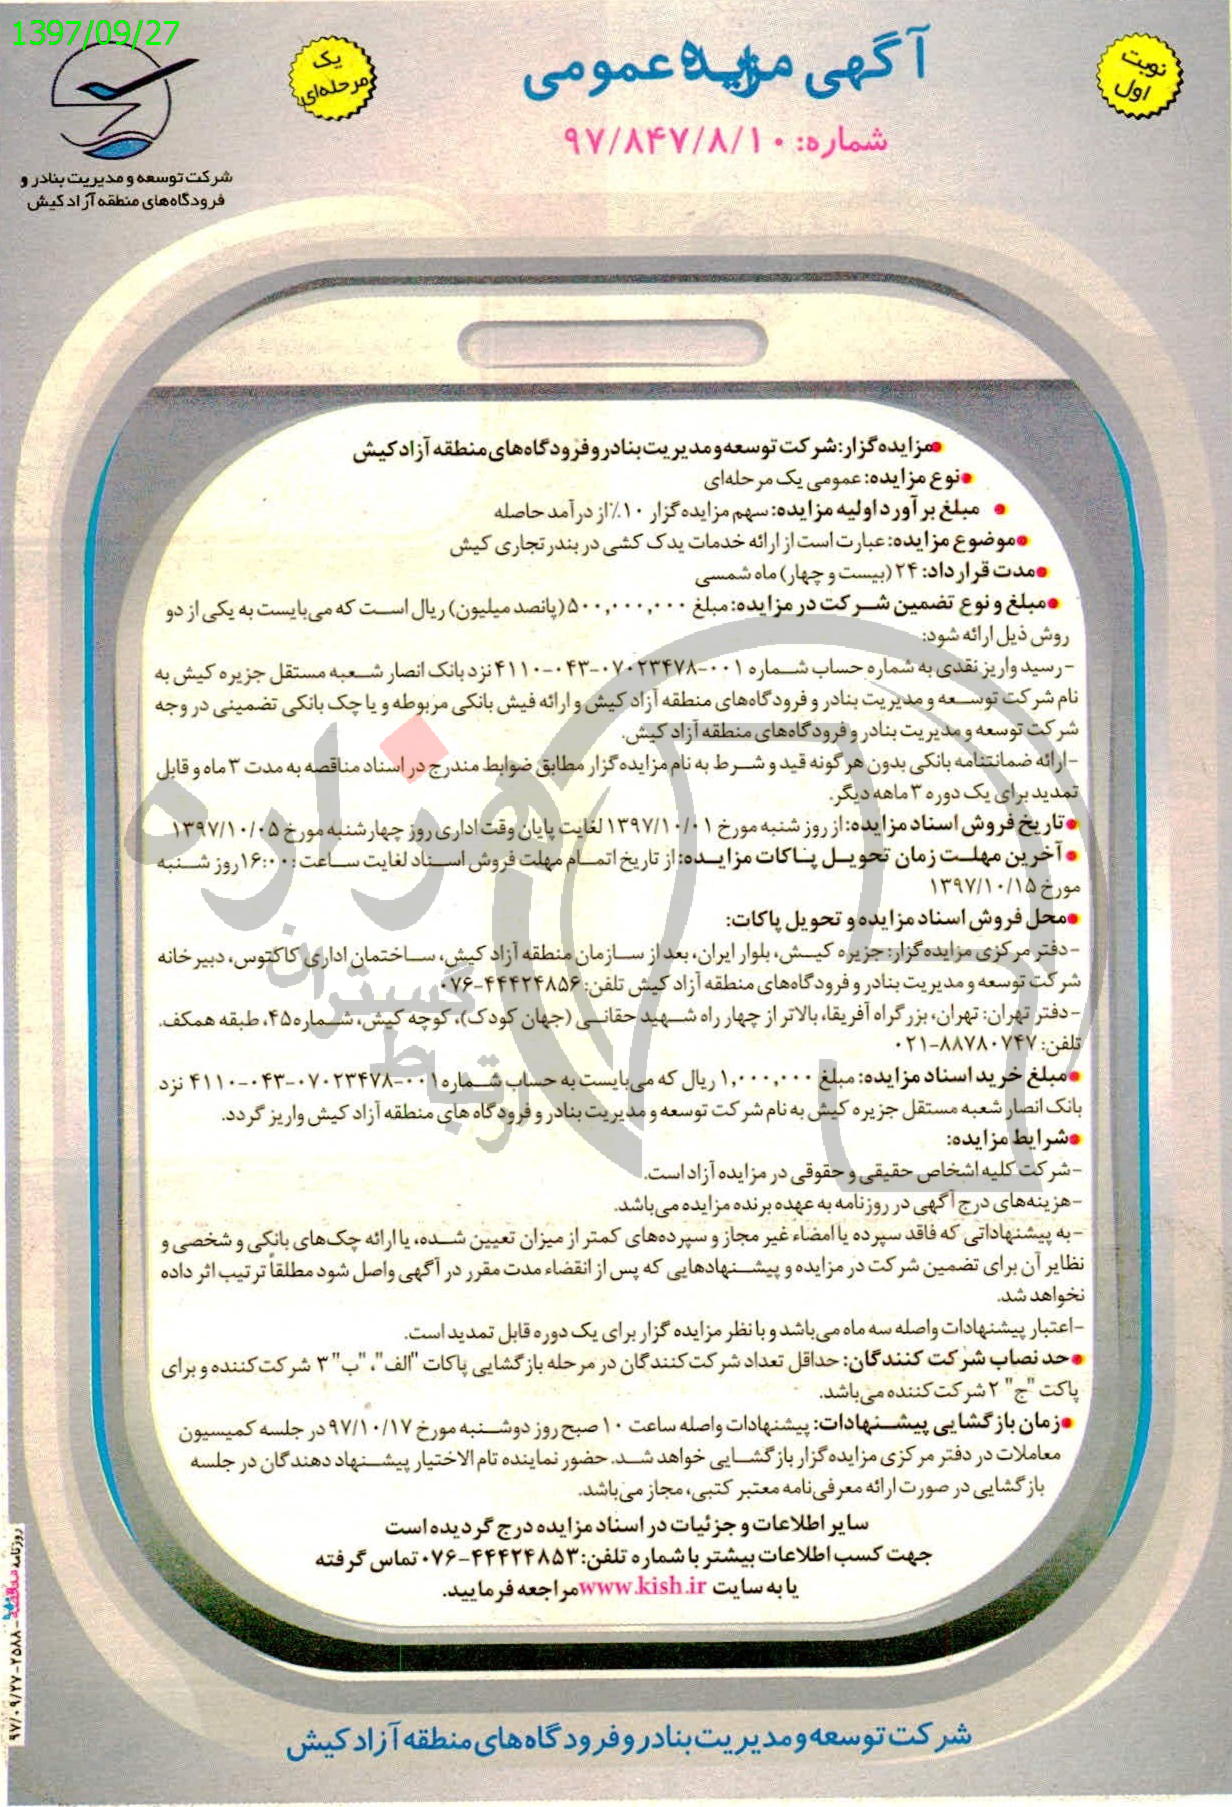 1397/09/27
نوبت
اول
یک
مرحله‌ای
آگهی مزایده عمومی
شماره: ۹۷/۸۴۷/۸/۱۰
شرکت توسعه و مدیریت بنادر و
فرودگاه‌های منطقه آزاد کیش
●مزایده گزار: شرکت توسعه و مدیریت بنادر و فرودگاه‌های منطقه آزاد کیش
●نوع مزایده: عمومی یک مرحله‌ای
● مبلغ برآورد اولیه مزایده: سهم مزایده گزار ۱۰٪ از درآمد حاصله
●موضوع مزایده: عبارت است از ارائه خدمات یدک کشی در بندر تجاری کیش
●مدت قرارداد: ۲۴ (بیست و چهار) ماه شمسی
●مبلغ و نوع تضمین شرکت در مزایده: مبلغ ۵۰۰,۰۰۰,۰۰۰ (پانصد میلیون) ریال است که می‌بایست به یکی از دو
روش ذیل ارائه شود:
-رسید واریز نقدی به شماره حساب شماره ۰۰۱-۰۷۰۲۳۴۷۸-۰۴۳-۴۱۱۰ نزد بانک انصار شعبه مستقل جزیره کیش به
نام شرکت توسعه و مدیریت بنادر و فرودگاه‌های منطقه آزاد کیش و ارائه فیش بانکی مربوطه و یا چک بانکی تضمینی در وجه
شرکت توسعه و مدیریت بنادر و فرودگاه‌های منطقه آزاد کیش.
-ارائه ضمانتنامه بانکی بدون هر گونه قید و شرط به نام مزایده گزار مطابق ضوابط مندرج در اسناد مناقصه به مدت ۳ ماه و قابل
تمدید برای یک دوره ۳ ماهه دیگر.
●تاریخ فروش اسناد مزایده: از روز شنبه مورخ ۱۳۹۷/۱۰/۰۱ لغایت پایان وقت اداری روز چهارشنبه مورخ ۱۳۹۷/۱۰/۰۵
●آخرین مهلت زمان تحویل پاکات مزایده: از تاریخ اتمام مهلت فروش اسناد لغایت ساعت ۱۶:۰۰ روز شنبه
مورخ ۱۳۹۷/۱۰/۱۵
●محل فروش اسناد مزایده و تحویل پاکات:
-دفتر مرکزی مزایده گزار: جزیره کیش، بلوار ایران، بعد از سازمان منطقه آزاد کیش، ساختمان اداری کاکتوس، دبیرخانه
شرکت توسعه و مدیریت بنادر و فرودگاه‌های منطقه آزاد کیش تلفن: ۴۴۴۲۴۸۵۶-۰۷۶
-دفتر تهران: تهران، بزرگراه آفریقا، بالاتر از چهار راه شهید حقانی (جهان کودک)، کوچه کیش، شماره ۴۵، طبقه همکف.
تلفن: ۸۸۷۸۰۷۴۷-۰۲۱
●مبلغ خرید اسناد مزایده: مبلغ ۱,۰۰۰,۰۰۰ ریال که می‌بایست به حساب شماره ۰۰۱-۰۷۰۲۳۴۷۸-۰۴۳-۴۱۱۰ نزد
بانک انصار شعبه مستقل جزیره کیش به نام شرکت توسعه و مدیریت بنادر و فرودگاه های منطقه آزاد کیش واریز گردد.
●شرایط مزایده:
-شرکت کلیه اشخاص حقیقی و حقوقی در مزایده آزاد است.
-هزینه‌های درج آگهی در روزنامه به عهده برنده مزایده می‌باشد.
-به پیشنهاداتی که فاقد سپرده یا امضاء غیر مجاز و سپرده‌های کمتر از میزان تعیین شده، یا ارائه چک‌های بانکی و شخصی و
نظایر آن برای تضمین شرکت در مزایده و پیشنهادهایی که پس از انقضاء مدت مقرر در آگهی واصل شود مطلقاً ترتیب اثر داده
نخواهد شد.
-اعتبار پیشنهادات واصله سه ماه می‌باشد و با نظر مزایده گزار برای یک دوره قابل تمدید است.
●حد نصاب شرکت کنندگان: حداقل تعداد شرکت کنندگان در مرحله بازگشایی پاکات "الف"، "ب" ۳ شرکت کننده و برای
پاکت "ج" ۲ شرکت کننده می‌باشد.
●زمان بازگشایی پیشنهادات: پیشنهادات واصله ساعت ۱۰ صبح روز دوشنبه مورخ ۹۷/۱۰/۱۷ در جلسه کمیسیون
معاملات در دفتر مرکزی مزایده گزار بازگشایی خواهد شد. حضور نماینده تام الاختیار پیشنهاد دهندگان در جلسه
بازگشایی در صورت ارائه معرفی‌نامه معتبر کتبی، مجاز می‌باشد.
سایر اطلاعات و جزئیات در اسناد مزایده درج گردیده است
جهت کسب اطلاعات بیشتر با شماره تلفن: ۴۴۴۲۴۸۵۳-۰۷۶ تماس گرفته
یا به سایت www.kish.ir مراجعه فرمایید.
شرکت توسعه و مدیریت بنادر و فرودگاه‌های منطقه آزاد کیش
روزنامه مناقصه - ۲۵۸۸ - ۹۷/۰۹/۲۷
هزاره
گستران
ارتباط